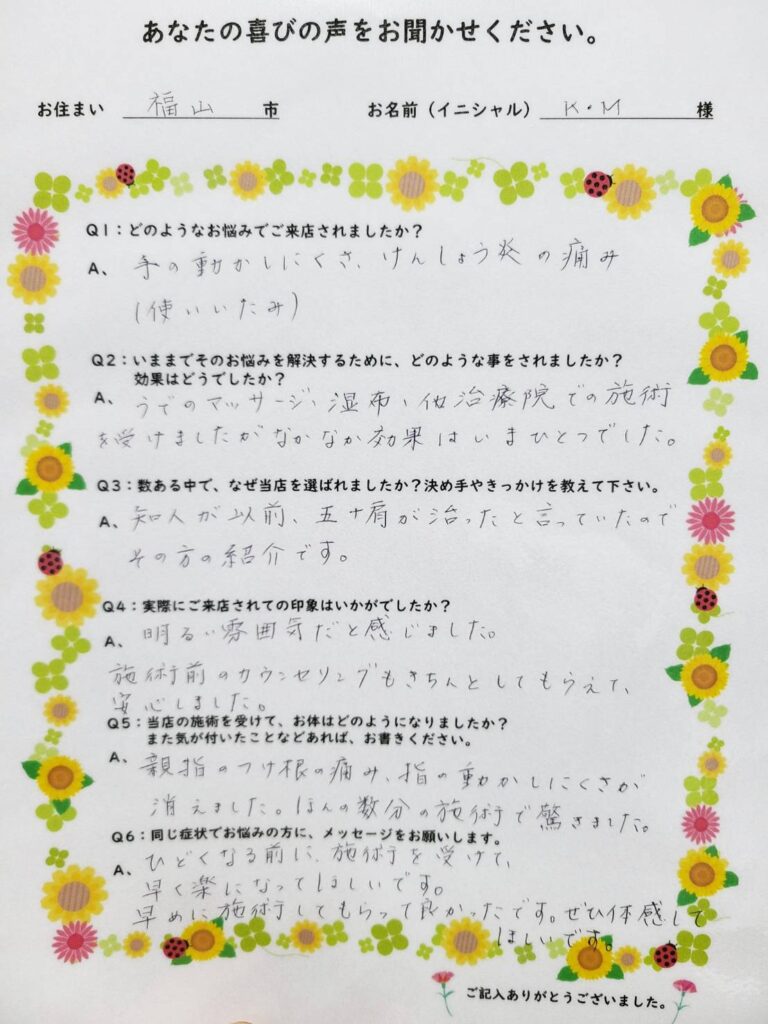 あなたの喜びの声をお聞かせください。
お住まい 福山 市 お名前（イニシャル） K・M 様
Q1：どのようなお悩みでご来店されましたか？
A、手の動かしにくさ、けんしょう炎の痛み
（使いいたみ）
Q2：いままでそのお悩みを解決するために、どのような事をされましたか？
効果はどうでしたか？
A、うでのマッサージ、湿布、他治療院での施術
を受けましたがなかなか効果はいまひとつでした。
Q3：数ある中で、なぜ当店を選ばれましたか？決め手やきっかけを教えて下さい。
A、知人が以前、五十肩が治ったと言っていたので
その方の紹介です。
Q4：実際にご来店されての印象はいかがでしたか？
A、明るい雰囲気だと感じました。
施術前のカウンセリングもきちんとしてもらえて、
安心しました。
Q5：当店の施術を受けて、お体はどのようになりましたか？
また気が付いたことなどあれば、お書きください。
A、親指のつけ根の痛み、指の動かしにくさが
消えました。ほんの数分の施術で驚きました。
Q6：同じ症状でお悩みの方に、メッセージをお願いします。
A、ひどくなる前に、施術を受けて、
早く楽になってほしいです。
早めに施術してもらって良かったです。ぜひ体感して
ほしいです。
ご記入ありがとうございました。